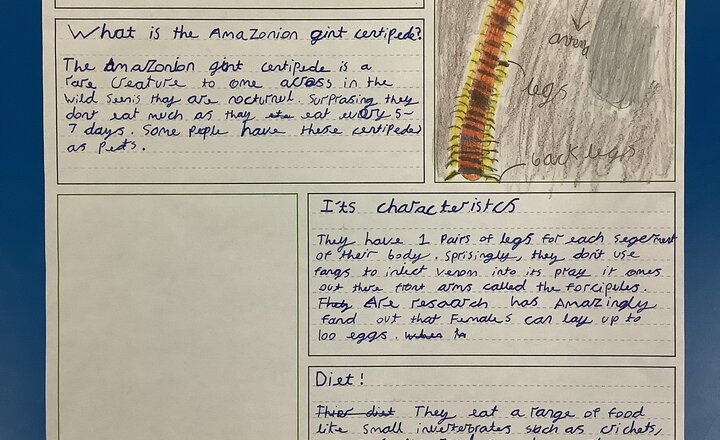 What is the Amazonion gint centipede?
The Amazonion gint centipede is a
rare creature to ome acass in the
wild seinis thay are nocturnul. Surprasing they
dont eat much as thay eat evary 5-
7 days. Some peple have these centipede
as pets.
legs
back legs
Its characteristcs
They have 1 pairs of legs for each segement
of their body. Sprisingly, they dont use
fangs to inject venom into its pray it omes
out there front arms called the forcipules.
They Are resoarch has Amazingly
fand out that Females can lay up to
100 eggs. when
Diet!
Thier diet They eat a range of food
like small invertebrates such as crichets,